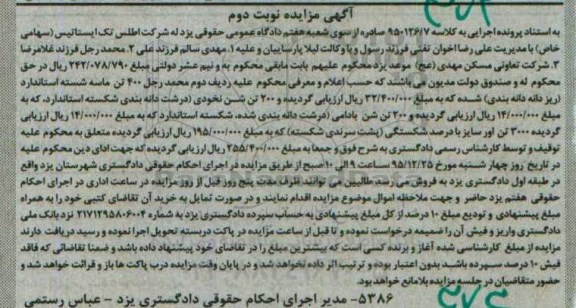 آگهی مزایده نوبت دوم
به استناد پرونده اجرایی به کلاسه ۹۵۰۱۲۶/۷ صادره از سوی شعبه هفتم دادگاه عمومی حقوقی یزد له شرکت اطلس تک ایستاتیس (سهامی
خاص) با مدیریت علی رضا اخوان تفتی فرزند رسول و با وکالت لیلا پارساییان و علیه ۱. مهدی سالم فرزند علی ۲. محمد رجل فرزند غلامرضا
۳. شرکت تعاونی مسکن مهدی (عج) موعد یزد محکوم علیهم بابت مابقی محکوم به و نیم عشر دولتی مبلغ ۲۴۲/۰۷۸/۷۹۰ ریال در حق
محکوم له و صندوق دولت مدیون می باشند که حسب اعلام و معرفی محکوم علیه ردیف دوم محمد رجل ۴۰۰ تن ماسه شسته استاندارد
(ریز دانه دانه بندی) شده که به مبلغ ۳۲/۴۰۰/۰۰۰ ریال ارزیابی گردیده و ۲۰۰ تن شن نخودی (درشت دانه بندی شکسته استاندارد، که به
مبلغ ۱۴/۰۰۰/۰۰۰ ریال ارزیابی گردیده و ۲۰۰ تن شن بادامی (درشت دانه بندی شده، شکسته استاندارد که به مبلغ ۱۴/۰۰۰/۰۰۰ ریال ارزیابی
گردیده ۳۰۰۰ تن اور سایز با درصد شکستگی (پشت سرندی شکسته) که به مبلغ ۱۹۵/۰۰۰/۰۰۰ ریال ارزیابی گردیده متعلق به محکوم علیه
توقیف و توسط کارشناس رسمی دادگستری به شرح فوق و جمعا به مبلغ ۲۵۵/۴۰۰/۰۰۰ ریال ارزیابی گردیده که جهت ادای دین محکوم علیه
در تاریخ روز چهار شنبه مورخ ۹۵/۱۲/۲۵ ساعت ۹ الی ۱۰ صبح از طریق مزایده در اجرای احکام حقوقی دادگستری شهرستان یزد واقع
در طبقه اول دادگستری یزد به فروش می رسد. طالبین می توانند ظرف مدت پنج روز قبل از روز مزایده در ساعت اداری در اجرای احکام
حقوقی هفتم یزد حاضر و جهت ملاحظه اموال موضوع مزایده اقدام نمایند و در صورت تمایل به خرید آن تقاضای کتبی خود را به همراه
مبلغ پیشنهادی و تودیع مبلغ ۱۰ درصد از کل مبلغ پیشنهادی به حساب سپرده دادگستری یزد به شماره ۲۱۷۱۲۹۵۸۰۶۰۰۴ نزد بانک ملی
دادگستری واریز و فیش آن را ضمیمه درخواست نموده و تا قبل از ساعت مزایده در پاکت دربسته تحویل اجرا نموده و رسید دریافت دارند
مزایده از مبلغ کارشناسی شده آغاز و برنده کسی است که بیشترین مبلغ را در تقاضای خود پیشنهاد داده باشد و ضمنا تقاضاتی که فاقد
فیش ۱۰ درصد سپرده باشد، بدون اعتبار بوده و ترتیب اثر داده نخواهد شد و در پایان وقت مزایده درب پاکت ها باز و قرائت خواهد شد و
حضور متقاضیان در جلسه مزایده بلامانع خواهد بود.
۵۳۸۶- مدیر اجرای احکام حقوقی دادگستری یزد - عباس رستمی